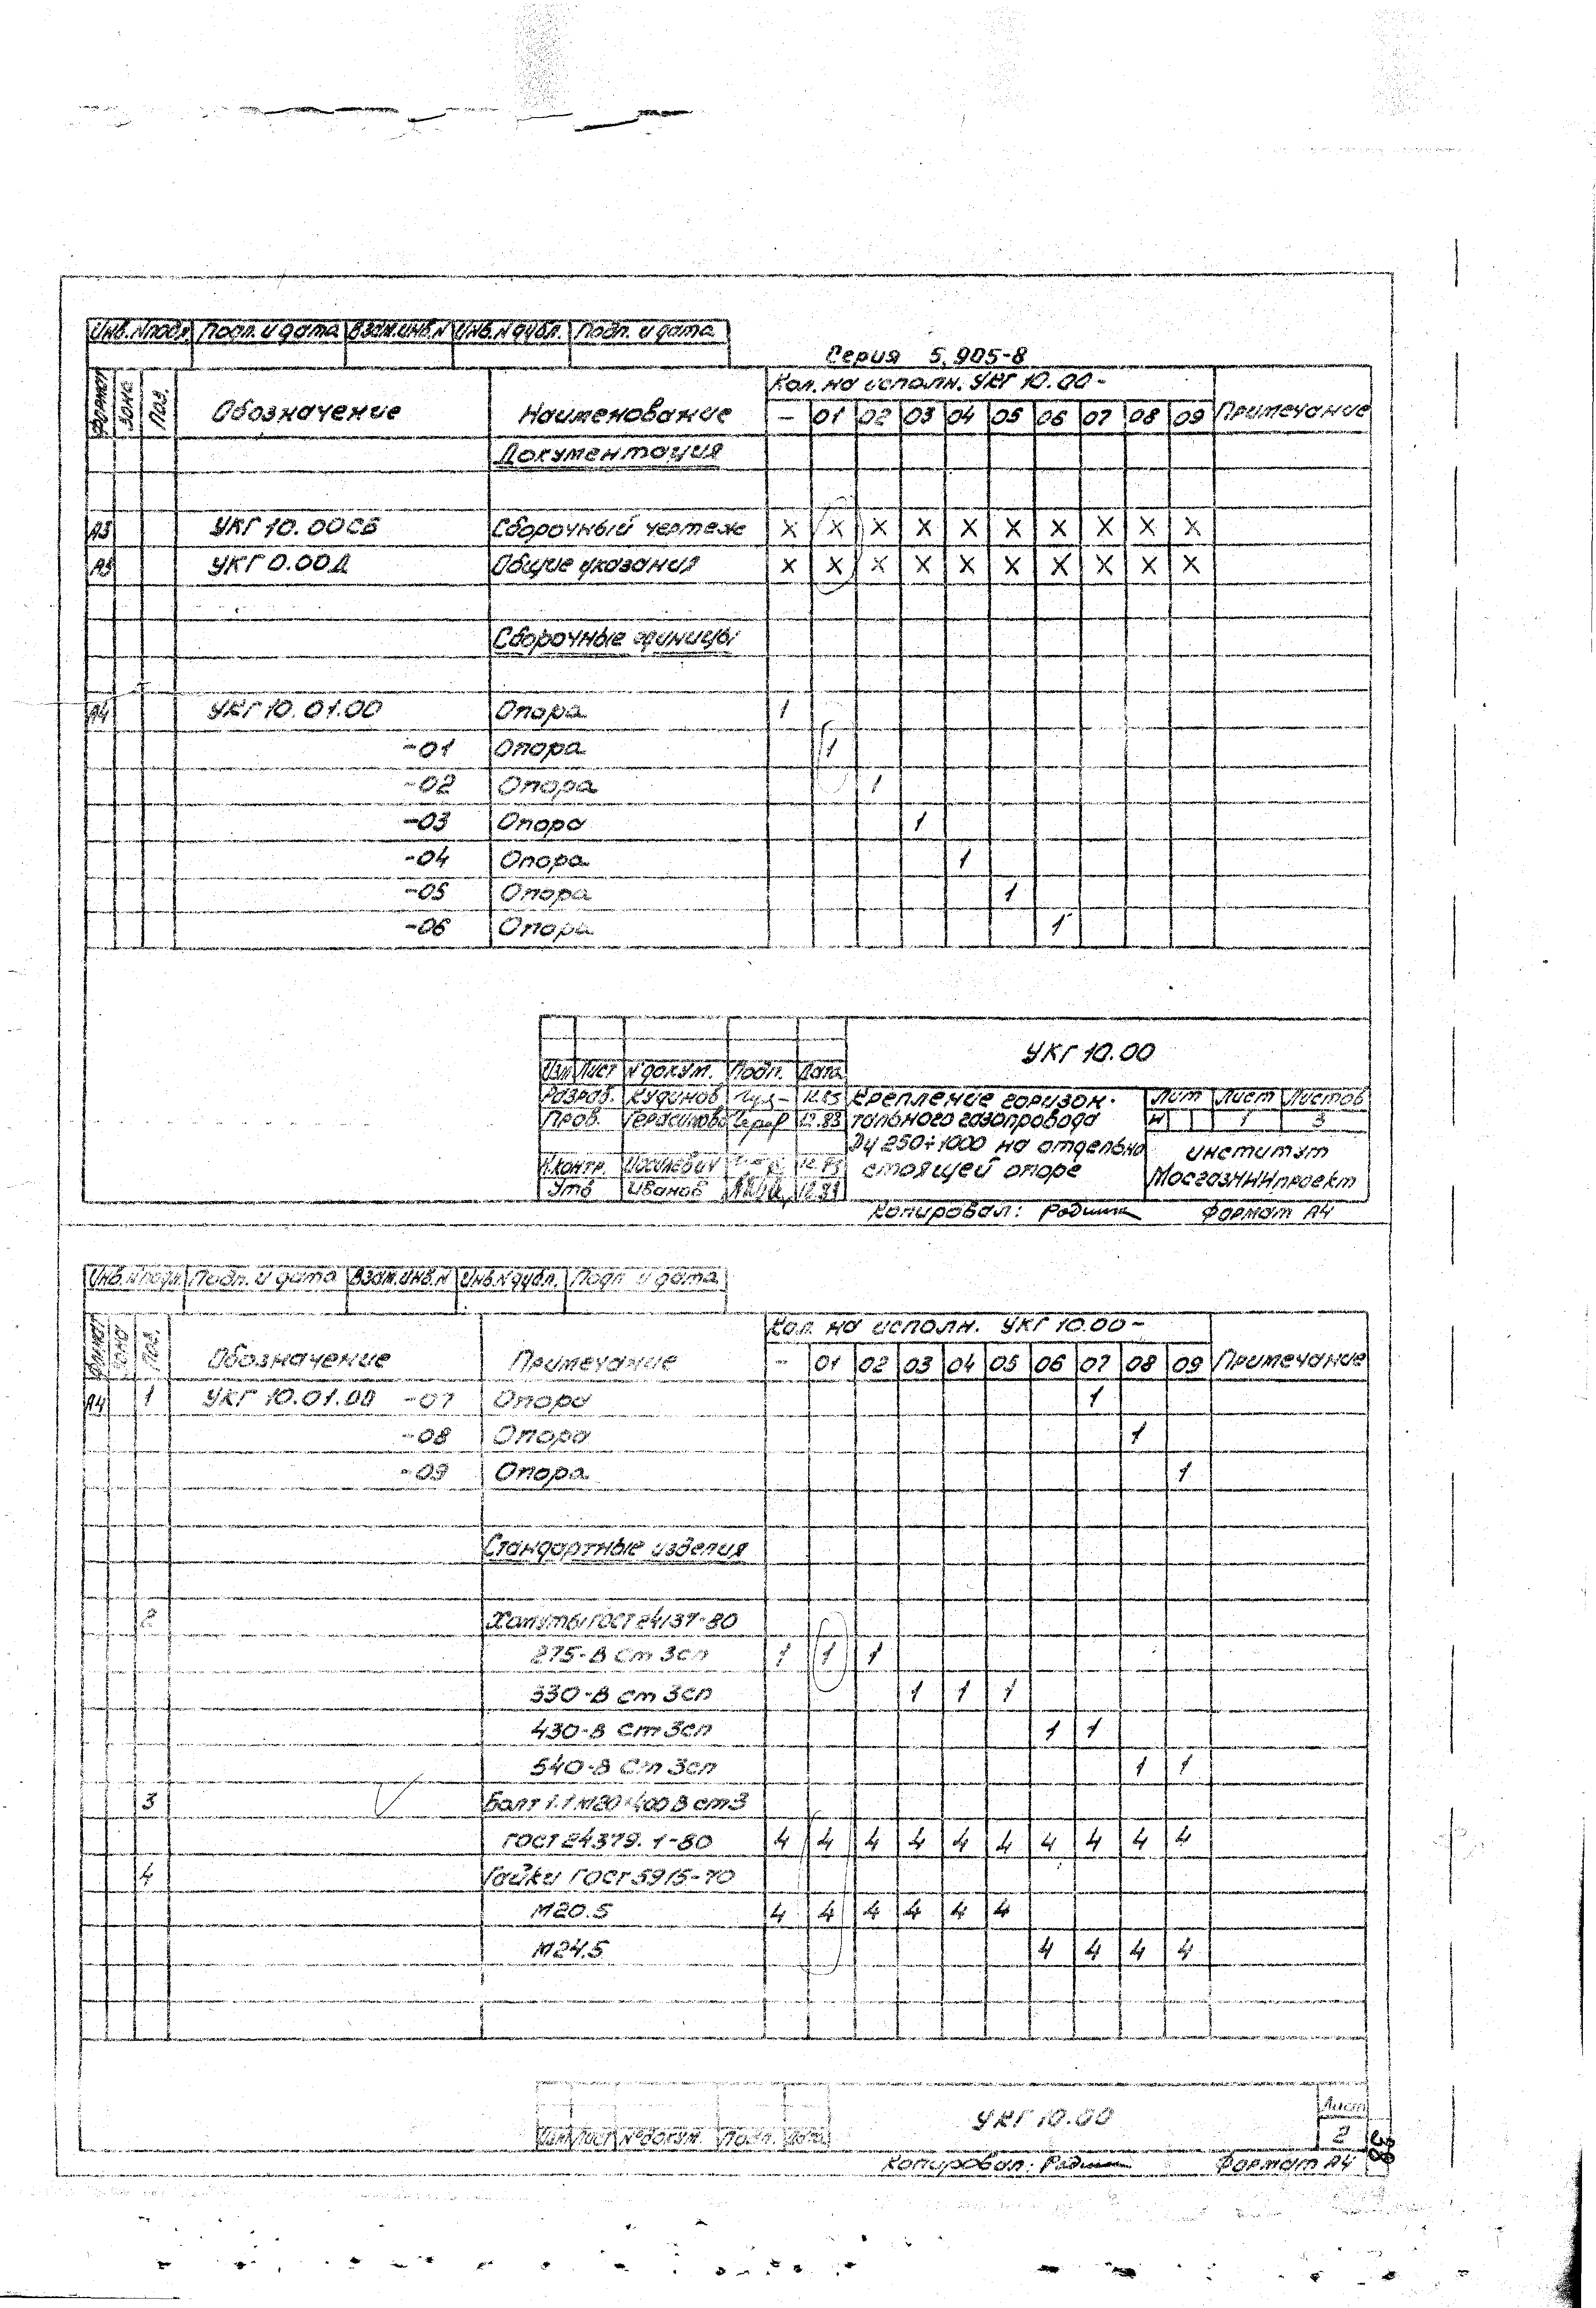 Инв.№подл. Подп. и дата Взам.инв.№ Инв.№дубл. Подп. и дата
Серия 5.905-8
Формат Зона Поз. Обозначение Наименование Кол. на исполн. УКГ 10.00- Примечание
- 01 02 03 04 05 06 07 08 09
Документация
А3 УКГ 10.00СБ Сборочный чертеж X X X X X X X X X X
А3 УКГ 0.00Д Общие указания X X X X X X X X X X
Сборочные единицы
А4 УКГ 10.01.00 Опора 1
-01 Опора 1
-02 Опора 1
-03 Опора 1
-04 Опора 1
-05 Опора 1
-06 Опора 1
УКГ 10.00
Изм Лист № докум. Подп. Дата
Разраб. Кудинов 12.83
Пров. Герасимова 12.83
Н.контр. 12.83
Утв Иванов 12.83
Крепление горизон-
тального газопровода
Ду 250÷1000 на отдельно
стоящей опоре
Лит Лист Листов
И 1 3
институт
МосгазНИИпроект
Копировал: Формат А4
Инв.№подл. Подп. и дата Взам.инв.№ Инв.№дубл. Подп. и дата
Формат Зона Поз. Обозначение Примечание Кол. на исполн. УКГ 10.00- Примечание
- 01 02 03 04 05 06 07 08 09
А4 1 УКГ 10.01.00 -07 Опора 1
-08 Опора 1
-09 Опора 1
Стандартные изделия
2 Хомуты ГОСТ 24137-80
275-В Ст 3сп 1 1 1
330-В ст 3сп 1 1 1
430-В Ст 3сп 1 1
540-В Ст 3сп 1 1
3 Болт 1.1 М20×400 В ст3
ГОСТ 24379.1-80 4 4 4 4 4 4 4 4 4 4
4 Гайки ГОСТ 5915-70
М20.5 4 4 4 4 4 4
М24.5 4 4 4 4
УКГ 10.00
Изм Лист № докум. Подп. Дата
Лист
2
38
Копировал: Формат А4